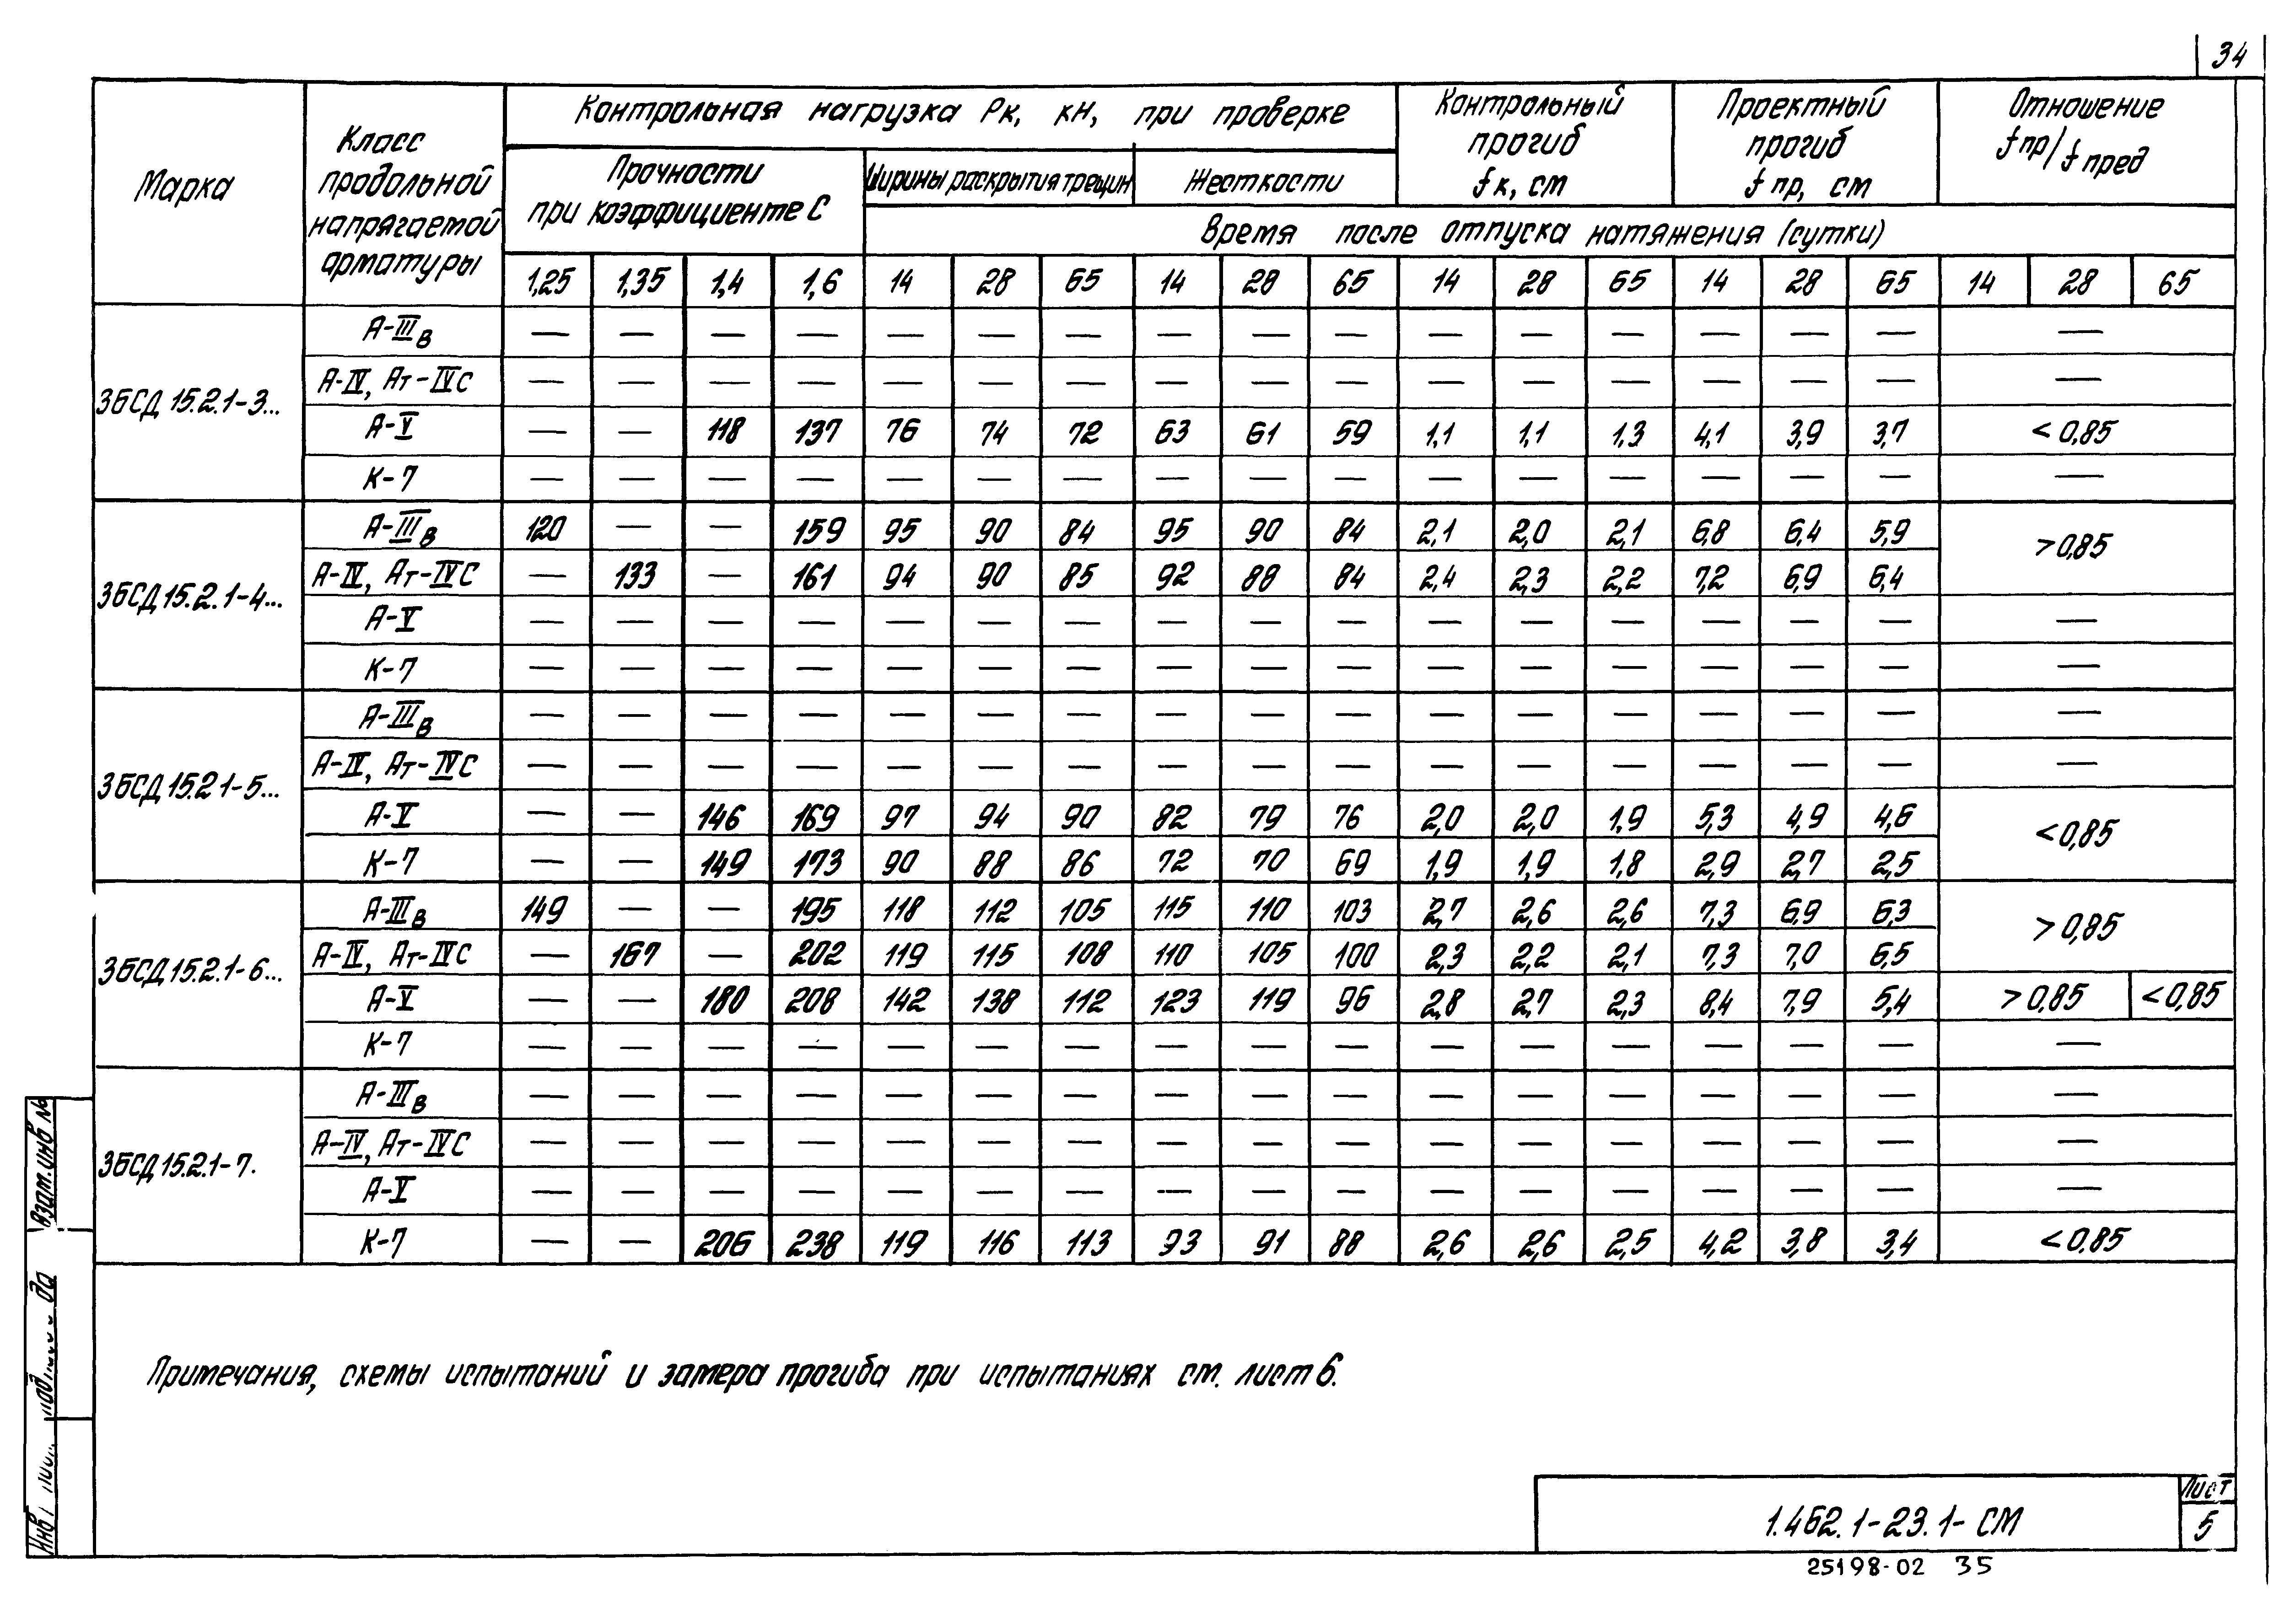 34
Марка
Класс продольной напрягаемой арматуры
Контрольная нагрузка Рк, кН, при проверке
Контрольный прогиб f к, см
Проектный прогиб f пр, см
Отношение f пр/f пред
Прочности при коэффициенте С
Ширины раскрытия трещин
Жесткости
Время после отпуска натяжения (сутки)
1,25 1,35 1,4 1,6 14 28 65 14 28 65 14 28 65 14 28 65 14 28 65
3БСД 15.2.1-3...
А-IIIв — — — — — — — — — — — — — — — — —
А-IV, Ат-IVС — — — — — — — — — — — — — — — — —
А-V — — 118 137 76 74 72 63 61 59 1,1 1,1 1,3 4,1 3,9 3,7 < 0,85
К-7 — — — — — — — — — — — — — — — — —
3БСД 15.2.1-4...
А-IIIв 120 — — 159 95 90 84 95 90 84 2,1 2,0 2,1 6,8 6,4 5,9 > 0,85
А-IV, Ат-IVС — 133 — 161 94 90 85 92 88 84 2,4 2,3 2,2 7,2 6,9 6,4
А-V — — — — — — — — — — — — — — — — —
К-7 — — — — — — — — — — — — — — — — —
3БСД 15.2 1-5...
А-IIIв — — — — — — — — — — — — — — — — —
А-IV, Ат-IVС — — — — — — — — — — — — — — — — —
А-V — — 146 169 97 94 90 82 79 76 2,0 2,0 1,9 5,3 4,9 4,6 < 0,85
К-7 — — 149 173 90 88 86 72 70 69 1,9 1,9 1,8 2,9 2,7 2,5
3БСД 15.2.1-6...
А-IIIв 149 — — 195 118 112 105 115 110 103 2,7 2,6 2,6 7,3 6,9 6,3 > 0,85
А-IV, Ат-IVС — 167 — 202 119 115 108 110 105 100 2,3 2,2 2,1 7,3 7,0 6,5
А-V — — 180 208 142 138 112 123 119 96 2,8 2,7 2,3 8,4 7,9 5,4 > 0,85 < 0,85
К-7 — — — — — — — — — — — — — — — — —
3БСД 15.2.1-7.
А-IIIв — — — — — — — — — — — — — — — — —
А-IV, Ат-IVС — — — — — — — — — — — — — — — — —
А-V — — — — — — — — — — — — — — — — —
К-7 — — 206 238 119 116 113 93 91 88 2,6 2,6 2,5 4,2 3,8 3,4 < 0.85
Примечания, схемы испытаний и замера прогиба при испытаниях см. лист 6.
Взам. инв №
1.462.1-23.1- СМ
Лист
5
25198-02 35